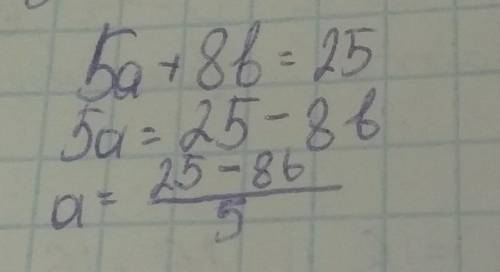 5a + 8b = 25
5a = 25 - 8b
a = 25 - 8b / 5